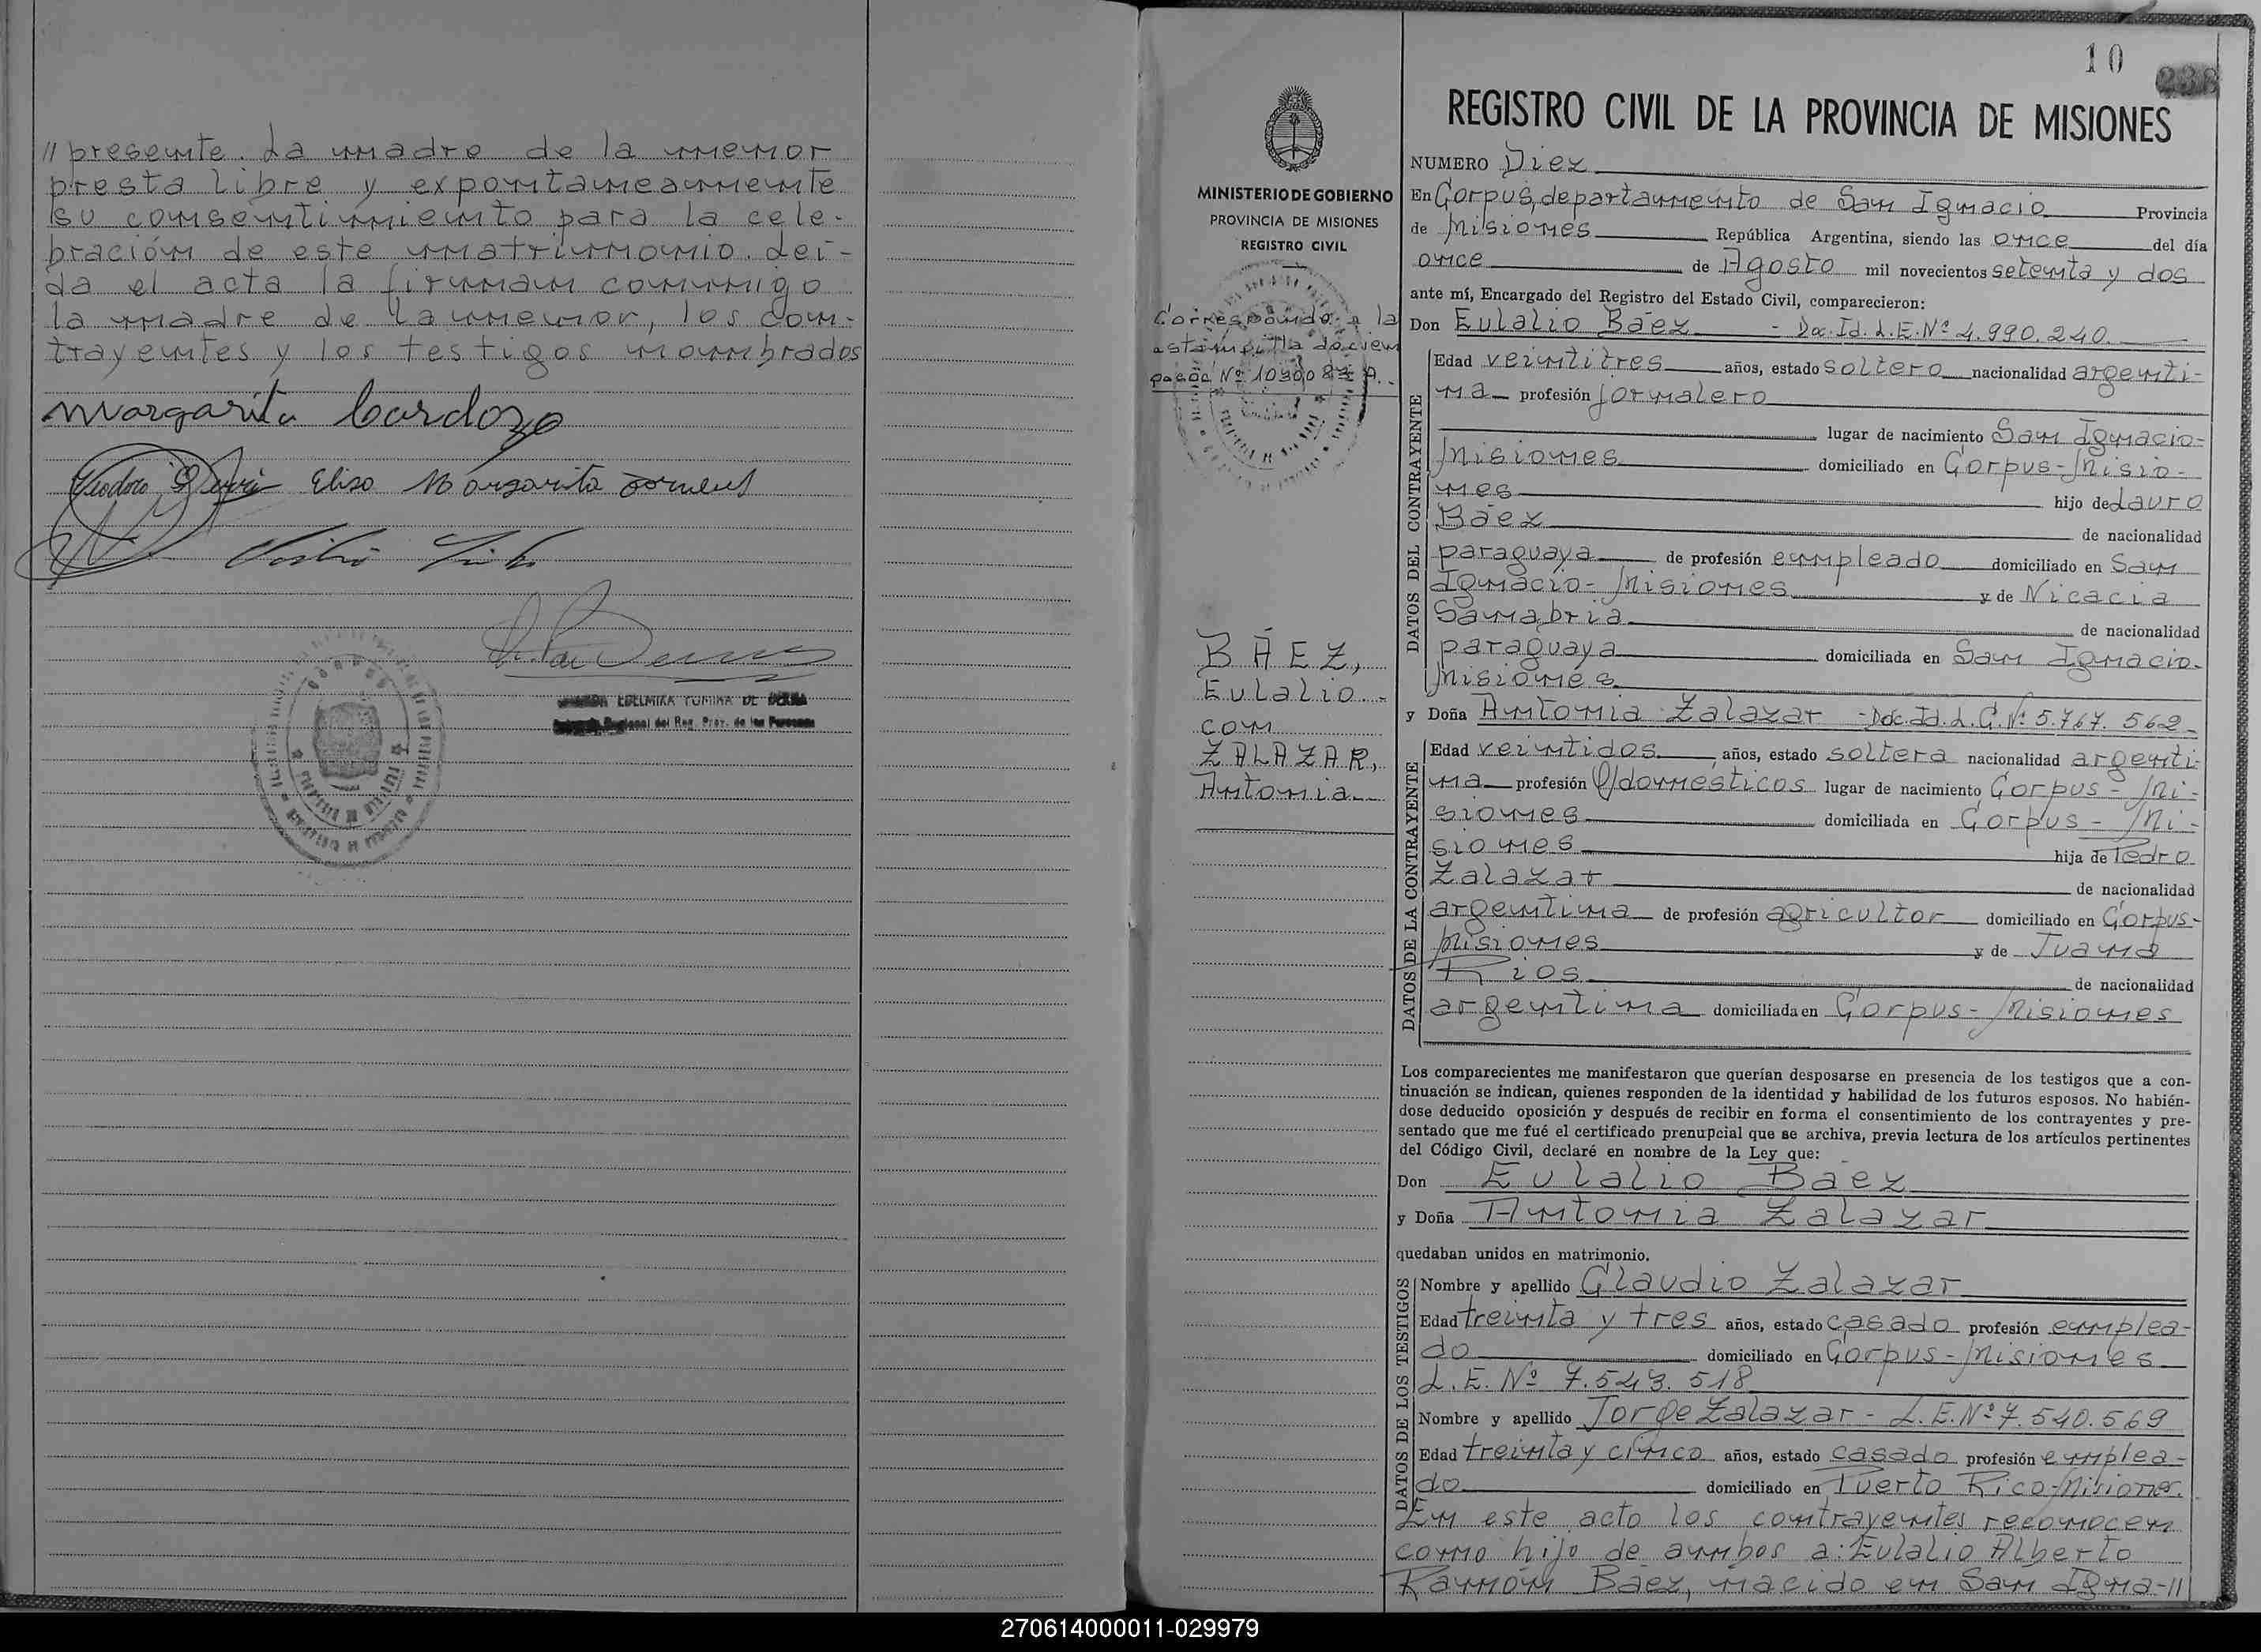 // presente. La madre de la menor
presta libre y expontaneamente
su consentimiento para la cele-
bración de este matrimonio. Leí-
da el acta la firman conmigo
la madre de la menor, los con-
trayentes y los testigos nombrados
Margarita Cardozo
Elisa Margarita
EDELMIRA DE
Regional del Reg. Prov. de las Personas
10
238
MINISTERIO DE GOBIERNO
PROVINCIA DE MISIONES
REGISTRO CIVIL
Corresponde a la
estampilla docum
pagos Nº
BÁEZ,
Eulalio
con
ZALAZAR,
Antonia
REGISTRO CIVIL DE LA PROVINCIA DE MISIONES
NUMERO Diez
En Corpus, departamento de San Ignacio Provincia
de Misiones República Argentina, siendo las once del día
once de Agosto mil novecientos setenta y dos
ante mí, Encargado del Registro del Estado Civil, comparecieron:
Don Eulalio Báez - Doc. Id. L.E. Nº 4.990.240.
DATOS DEL CONTRAYENTE
Edad veintitres años, estado soltero nacionalidad argenti-
na profesión jornalero
lugar de nacimiento San Ignacio-
Misiones domiciliado en Corpus-Misio-
nes hijo de Lauro
Báez de nacionalidad
paraguaya de profesión empleado domiciliado en San
Ignacio- Misiones y de Nicacia
Sanabria de nacionalidad
paraguaya domiciliada en San Ignacio-
Misiones
y Doña Antonia Zalazar - Doc. Id. L.C. Nº 5.767.562-
DATOS DE LA CONTRAYENTE
Edad veintidos años, estado soltera nacionalidad argenti-
na profesión Q/domesticos lugar de nacimiento Corpus - Mi-
siones domiciliada en Corpus - Mi-
siones hija de Pedro
Zalazar de nacionalidad
argentina de profesión agricultor domiciliado en Corpus-
Misiones y de Juana
Rios de nacionalidad
argentina domiciliada en Corpus- Misiones
Los comparecientes me manifestaron que querían desposarse en presencia de los testigos que a con-
tinuación se indican, quienes responden de la identidad y habilidad de los futuros esposos. No habién-
dose deducido oposición y después de recibir en forma el consentimiento de los contrayentes y pre-
sentado que me fué el certificado prenupcial que se archiva, previa lectura de los artículos pertinentes
del Código Civil, declaré en nombre de la Ley que:
Don Eulalio Báez
y Doña Antonia Zalazar
quedaban unidos en matrimonio.
DATOS DE LOS TESTIGOS
Nombre y apellido Claudio Zalazar
Edad treinta y tres años, estado casado profesión emplea-
do domiciliado en Corpus - Misiones
L.E. Nº 7.543.518
Nombre y apellido Jorge Zalazar - L.E. Nº 7.540.569
Edad treinta y cinco años, estado casado profesión emplea-
do domiciliado en Puerto Rico-Misiones.
En este acto los contrayentes reconocen
como hijo de ambos a: Eulalio Alberto
Ramón Báez, nacido en San Igna-//
270614000011-029979